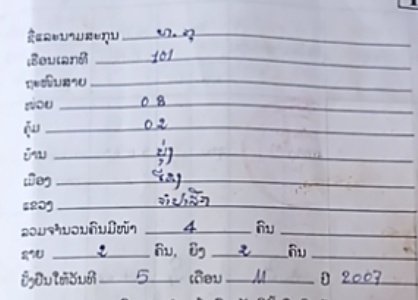 ຊື່ແລະນາມສະກຸນ
ເຮືອນເລກທີ 101
ຖະໜົນສາຍ
ໜ່ວຍ 08
ຄຸ້ມ 02
ບ້ານ
ເມືອງ
ແຂວງ ຈຳປາສັກ
ລວມຈຳນວນຄົນມີໜ້າ 4 ຄົນ
ຊາຍ 2 ຄົນ, ຍິງ 2 ຄົນ
ຢັ້ງຢືນໃຫ້ວັນທີ 5 ເດືອນ 11 ປີ 2007